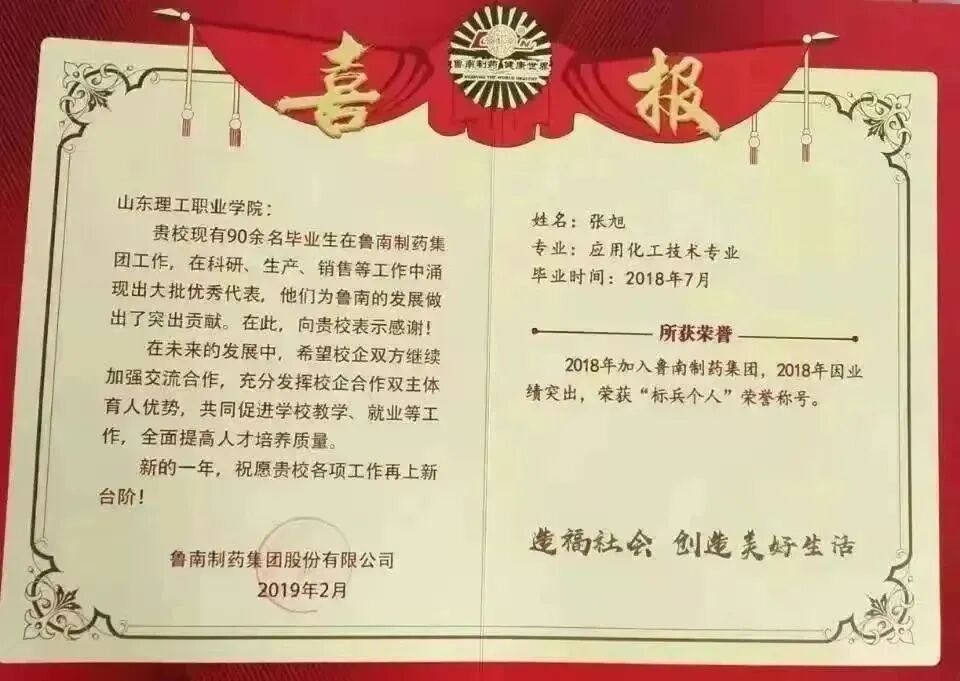 喜报
鲁南制药 健康世界
KEEPING THE WORLD HEALTHY
山东理工职业学院：
贵校现有90余名毕业生在鲁南制药集
团工作，在科研、生产、销售等工作中涌
现出大批优秀代表，他们为鲁南的发展做
出了突出贡献。在此，向贵校表示感谢！
在未来的发展中，希望校企双方继续
加强交流合作，充分发挥校企合作双主体
育人优势，共同促进学校教学、就业等工
作，全面提高人才培养质量。
新的一年，祝愿贵校各项工作再上新
台阶！
鲁南制药集团股份有限公司
2019年2月
姓名：张旭
专业：应用化工技术专业
毕业时间：2018年7月
所获荣誉
2018年加入鲁南制药集团，2018年因业
绩突出，荣获“标兵个人”荣誉称号。
造福社会 创造美好生活